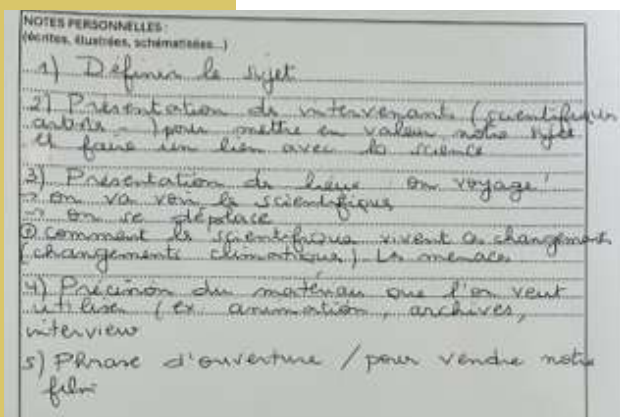 NOTES PERSONNELLES :
(écrites, illustrées, schématisées...)
1) Définir le sujet
2) Présentation de intervenants (scientifiques
artistes ) pour mettre en valeur notre sujet
et faire un lien avec la science
3) Présentation de lieux : on voyage !
→ on va voir les scientifiques
→ on se déplace
comment les scientifiques vivent ces changements
(changements climatiques). La menace
4) Précision du matériau que l'on veut
utiliser (ex. animation, archives,
interview
5) Phrase d'ouverture / pour vendre notre
film